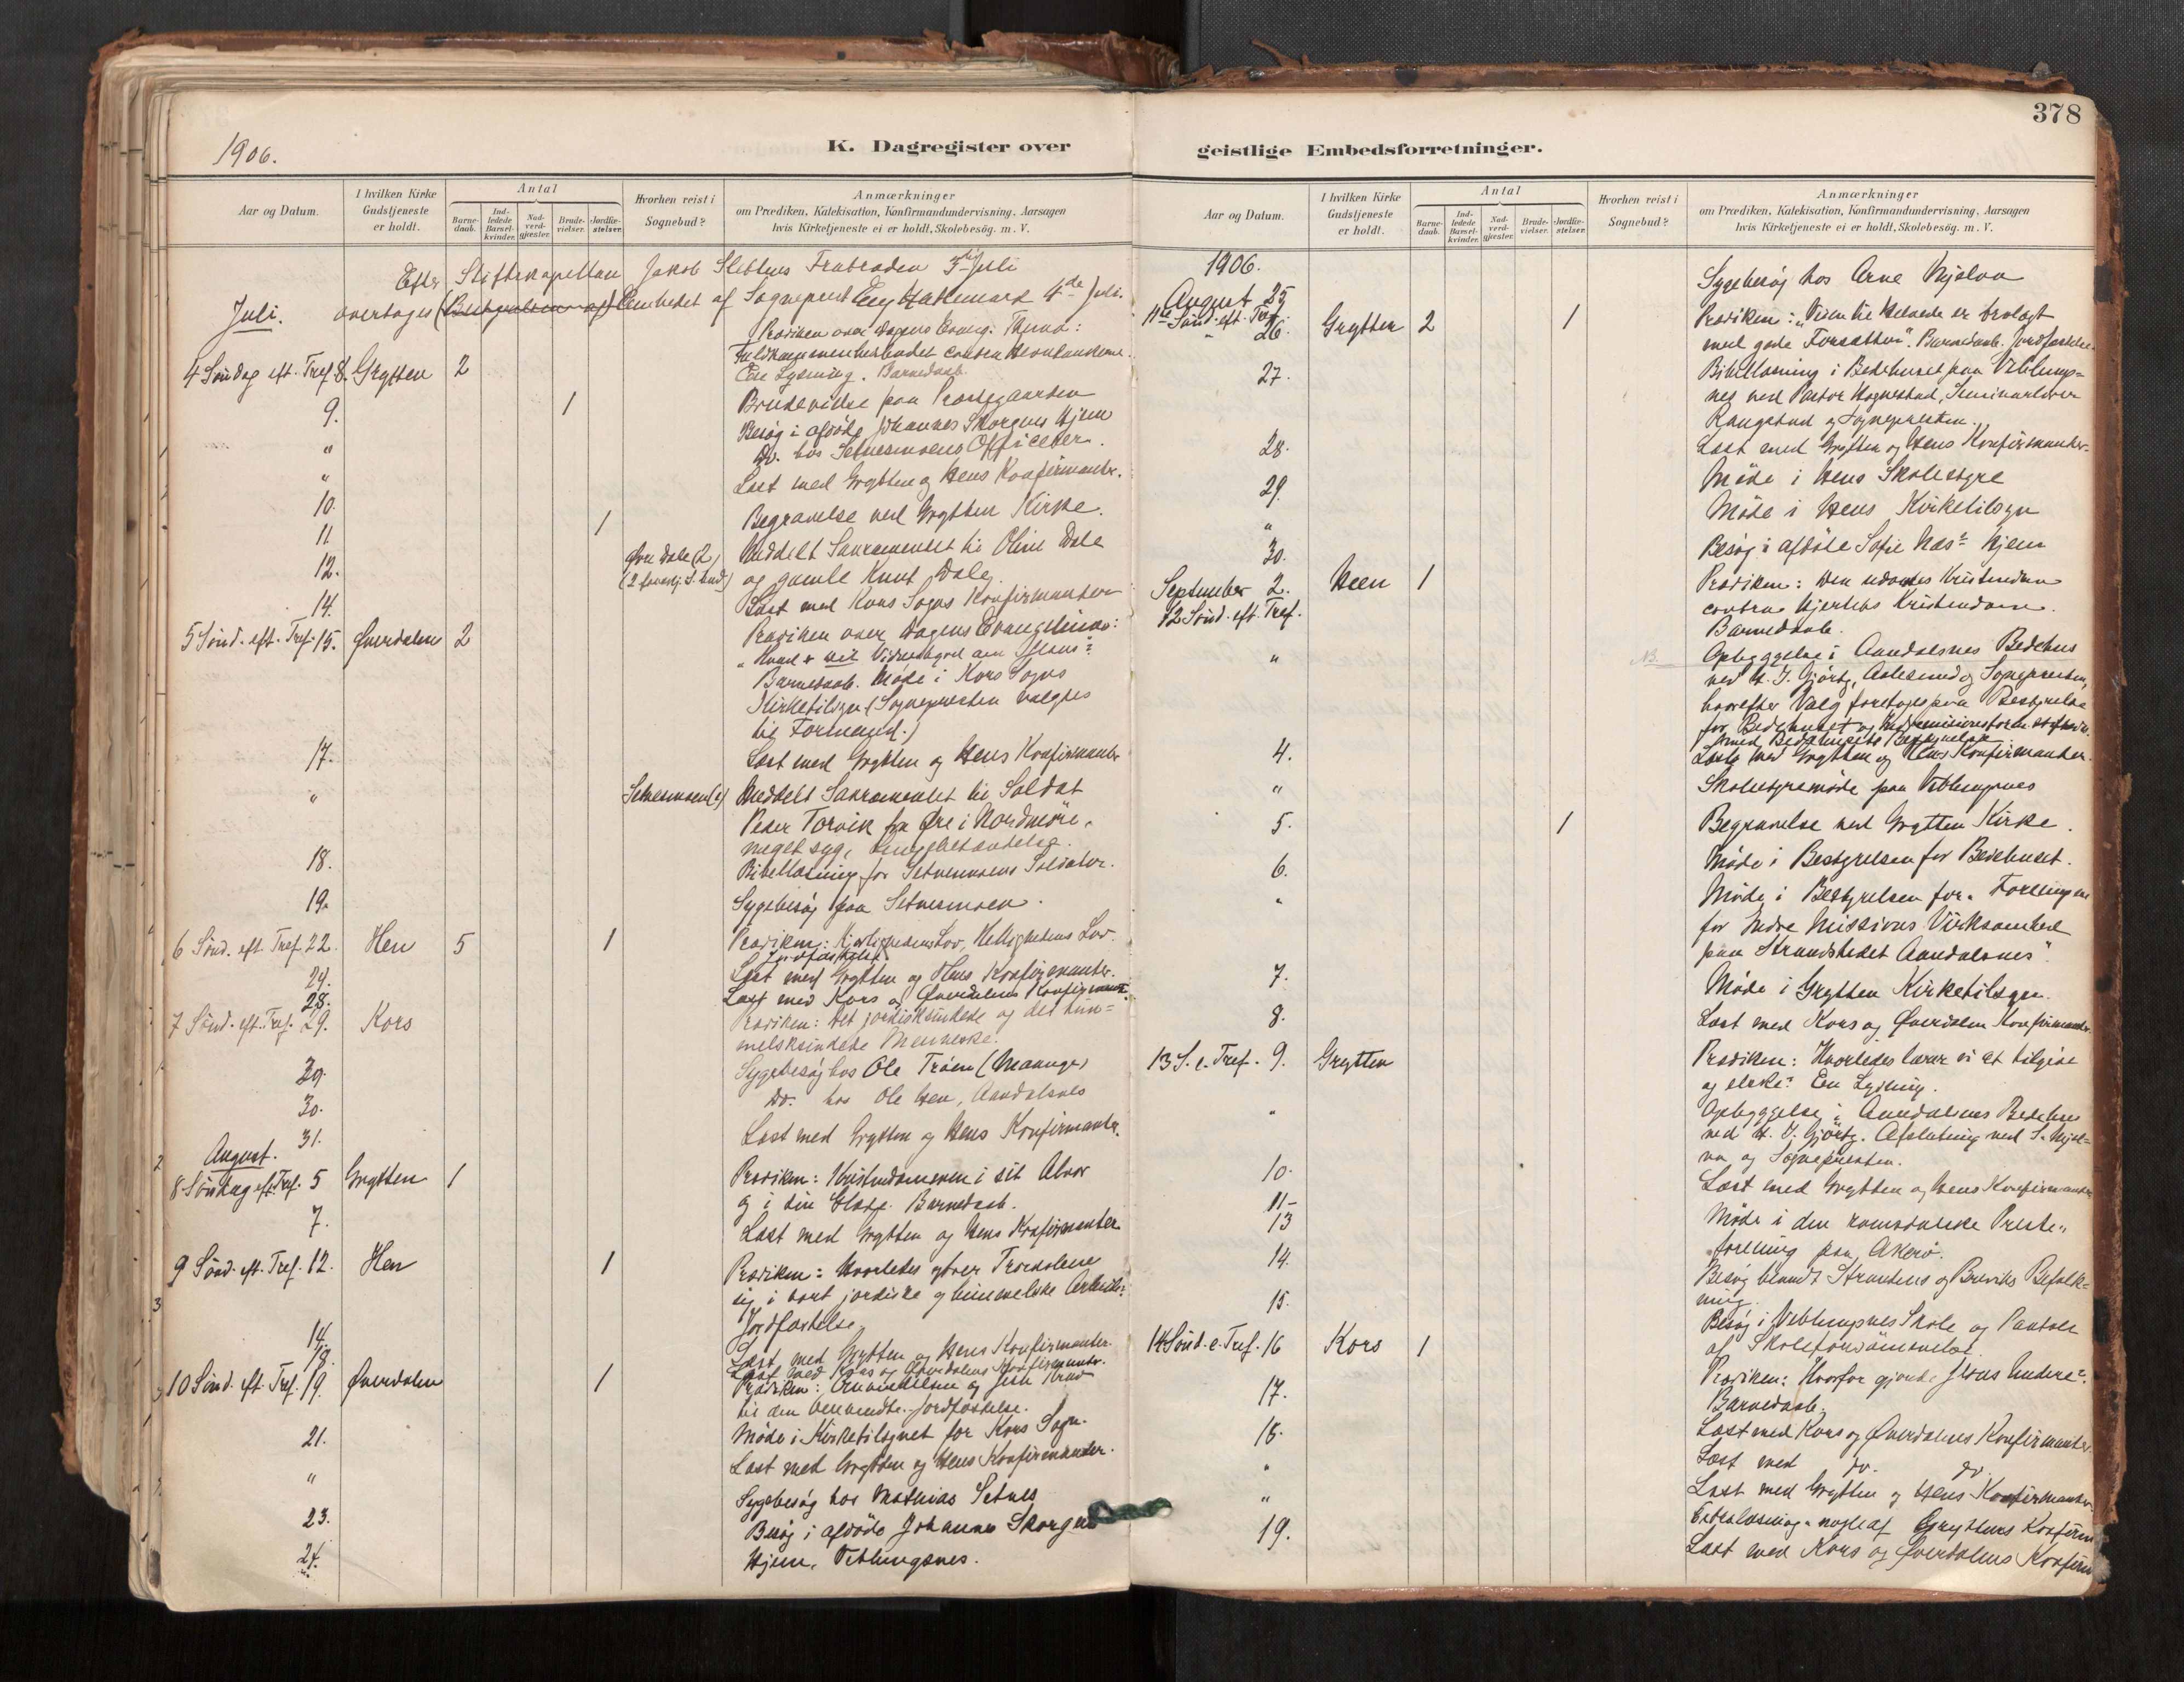 1906.
K. Dagregister over
Aar og Datum.
I hvilken Kirke Gudstjeneste er holdt.
Antal
Barne-daab.
Ind-ledede Barsel-kvinder.
Nad-verd-gjæster.
Brude-vielser.
Jordfæ-stelser.
Hvorhen reist i Sognebud?
Anmærkninger
om Prædiken, Katekisation, Konfirmandundervisning, Aarsagen
hvis Kirketjeneste ei er holdt, Skolebesög. m. V.
Efter Stiftskapellan Jakob Slettens Fratræden 3die Juli
Juli. overtoges (Bestyrelsen af) Embedet af Sogneprest 4de Juli.
Prædiken over Dagens Evang. Thema:
4 Søndag eft. Tref. 8. Grytten 2
Een Lysning. Barnedaab.
9. 1 Brudevielse paa Præstegaarden
" Besøg i afdøde Johannes Skorgens Hjem
" Do. hos Setnesmoens Officerer.
10. Læst med Grytten og Hens Konfirmanter.
11 1 Begravelse ved Grytten Kirke.
12. Øvre Dale (2) Meddelt Sakramentet til Oline Dale
og gamle Knut Dale.
14. Læst med Kors Sogns Konfirmanter
5 Sønd. eft. Tref. 15. Øverdalen 2 Prædiken over Dagens Evangelium:
"Hvad er dit Vidnesbyrd om Jesus?"
Barnedaab. Møde i Kors Sogns
Kirketilsyn (Sognepresten valgtes
til Formand.)
17. Læst med Grytten og Hens Konfirmanter
" Setnesmoen (1) Meddelt Sakramentet til Soldat
Peder Torvik fra Øre i Nordmøre,
meget syg, Lungebetændelse.
18. Bibellæsning for Setnesmoens Soldater.
19. Sygebesøg paa Setnesmoen.
6 Sønd. eft. Tref. 22. Hen 5 1 Prædiken: Kjærlighedens Lov, Hellighedens Lov.
Jordfæstelse
24. Læst med Grytten og Hens Konfirmanter.
28. Læst med Kors og Øverdalens Konfirmant.
7 Sønd. eft. Tref. 29. Kors Prædiken: Det jordisksindede og det him=
melsksindede Menneske.
29. Sygebesøg hos Ole Trøen (Maange)
30. Do. hos Ole Hen, Aandalsnes
31. Læst med Grytten og Hens Konfirmanter.
August.
8 Søndag eft. Tref. 5 Grytten 1 Prædiken: Kristendommen i sit Alvor
og i sin Glæde. Barnedaab.
7. Læst med Grytten og Hens Konfirmanter
9 Sønd. eft. Tref. 12. Hen 1 Prædiken: Hvorledes ytrer Troskaben
sig i vort jordiske og himmelske Arbeide?
Jordfæstelse.
14. Læst med Grytten og Hens Konfirmanter.
18. Læst med Kors og Øverdalens Konfirmanter.
10 Sønd. eft. Tref. 19. Øverdalen 1 Prædiken: Omvendelsen og Jesu Krav
til den Omvendte. Jordfæstelse.
21. Møde i Kirketilsynet for Kors Sogn.
" Læst med Grytten og Hens Konfirmanter.
23. Sygebesøg hos Mathias Setnes
24. Besøg i afdøde Johannes Skorgens
Hjem, Veblungsnes.
378
geistlige Embedsforretninger.
Aar og Datum.
I hvilken Kirke Gudstjeneste er holdt.
Antal
Barne-daab.
Ind-ledede Barsel-kvinder.
Nad-verd-gjæster.
Brude-vielser.
Jordfæ-stelser.
Hvorhen reist i Sognebud?
Anmærkninger
om Prædiken, Katekisation, Konfirmandundervisning, Aarsagen
hvis Kirketjeneste ei er holdt, Skolebesög. m. V.
1906.
August 25 Sygebesøg hos Arne Mjelva
11te Sønd. eft. Tref. 26. Grytten 2 1 Prædiken: "Veien til Helvede er brolagt
med gode Forsætter". Barnedaab. Jordfæstelse.
27. Bibellæsning i Bedehuset paa Veblungs=
nes ved Pastor Hognestad, Seminarlærer
og Sognepresten.
28. Læst med Grytten og Hens Konfirmanter.
29. Møde i Hens Skolestyre
" Møde i Hens Kirketilsyn
30. Besøg i afdøde Sofie Næs' Hjem
September 2. Heen 1 Prædiken: Den udvortes Kristendom
12 Sønd. eft. Tref. contra Hjertets Kristendom.
Barnedaab.
" NB. Opbyggelse i Aandalsnes Bedehus
ved H. J. Gjörtz, Aalesund og Sognepresten,
hvorefter Valg foretoges paa Bestyrelse
for Bedehuset og
4. Læst med Grytten og Hens Konfirmanter.
" Skolestyremøde paa Veblungsnes
5. 1 Begravelse ved Grytten Kirke.
6. Møde i Bestyrelsen for Bedehuset.
" Møde i Bestyrelsen for "Foreningen
for Indre Missions Virksomhed
paa Strandstedet Aandalsnes".
7. Møde i Grytten Kirketilsyn.
8. Læst med Kors og Øverdalen Konfirmanter.
13 S. e. Tref. 9. Grytten Prædiken: Hvorledes lærer vi at tilgive
og elske? Een Lysning.
" Opbyggelse i Aandalsnes Bedehus
ved H. J. Gjörtz. Afslutning ved S. Mjel=
va og Sognepresten.
10. Læst med Grytten og Hens Konfirmanter
11- Møde i den romsdalske Preste=
13 forening paa Akerø.
14. Besøg blandt Strandens og Breviks Befolk=
ning.
15. Besøg i Veblungsnes Skole og
af Skoleforsømmelse.
14 Sønd. e. Tref. 16 Kors 1 Prædiken: Hvorfor gjorde Jesus Undere?
Barnedaab.
17. Læst med Kors og Øverdalens Konfirmanter.
18. Læst med do. do.
" Læst med Grytten og Hens Konfirmanter.
" Extralæsning nogle af Gryttens Konfirm
19. Læst med Kors og Øverdalens Konfirm